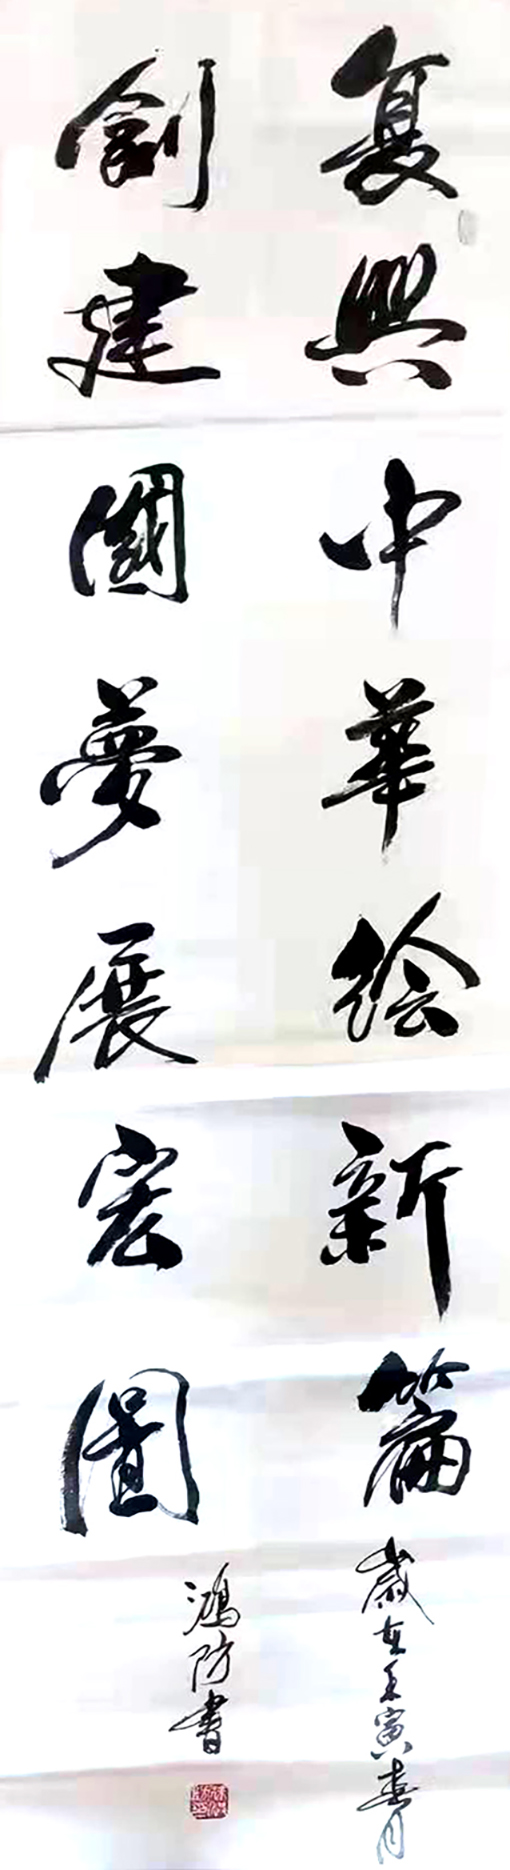 复興中華绘新篇
歲在壬寅春月
創建國夢展宏圖
鴻防書